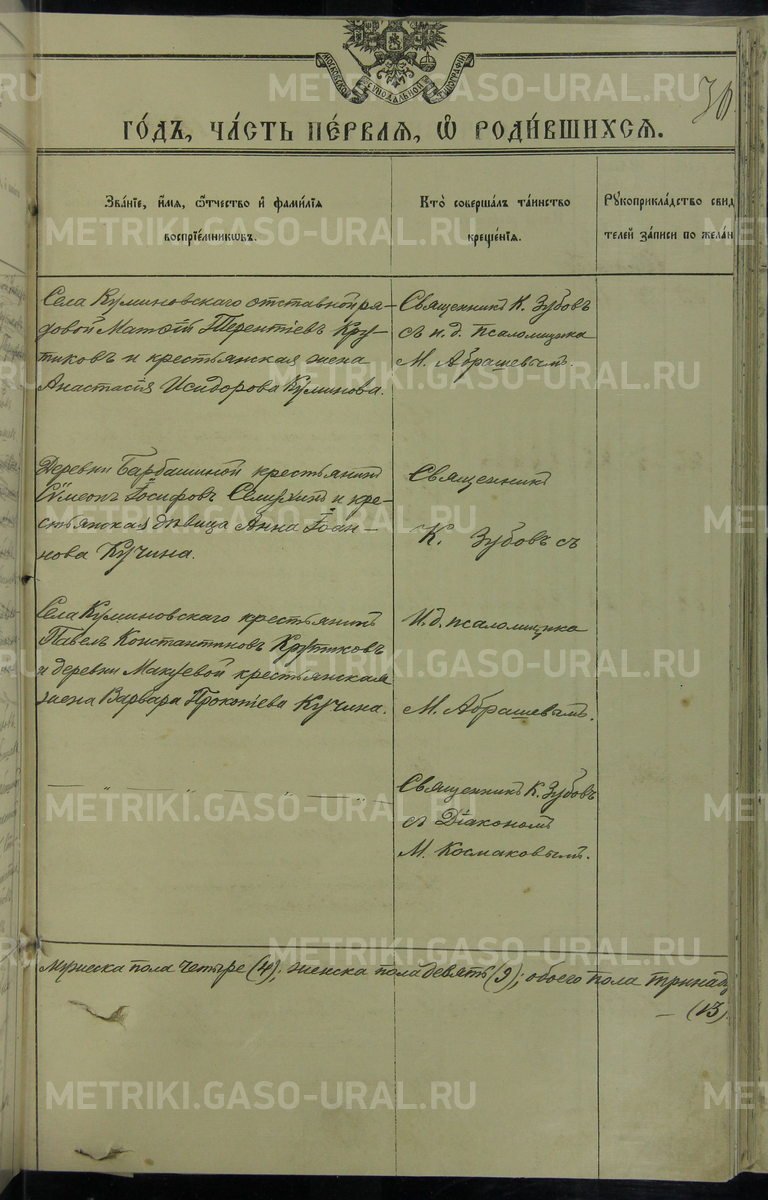 МОСКОВСКОЙ СѴНОДАЛЬНОЙ ТИПОГРАФІИ
30
ГО́ДЪ, ЧА́СТЬ ПЕ́РВАЯ, Ѡ҆ РОДИ́ВШИХСЯ.
Зва́нїе, и҆́мя, ѻ҆́тчество и҆ фами́лїя
воспрїе́мникѡвъ.
Кто̀ соверша́лъ та́инство
креще́нїя.
Рꙋкоприкла́дство свид
телей за́писи по жела́н
Села Куминовскаго отставной ря-
довой Матѳій Терентіевъ Кру-
тиковъ и крестьянская жена
Анастасія Исидорова Куминова.
Священникъ К. Зубовъ
съ и. д. псаломщика
М. Абрашевымъ.
Деревни Барбашиной крестьянинъ
Сѵмеонъ Іосифовъ Семухинъ и кре-
стьянская дѣвица Анна Іоан-
нова Кучина.
Священникъ
К. Зубовъ съ
Села Куминовскаго крестьянинъ
Павелъ Константиновъ Крутиковъ
и деревни Макуевой крестьянская
жена Варвара Прокопіева Кучина.
И. д. псаломщика
М. Абрашевымъ.
— „ — „ — „ — „ —
Священникъ К. Зубовъ
съ Діакономъ
М. Космаковымъ.
Мужеска пола четыре (4); женска пола девять (9); обоего пола тринадц
— (13)
METRIKI.GASO-URAL.RU